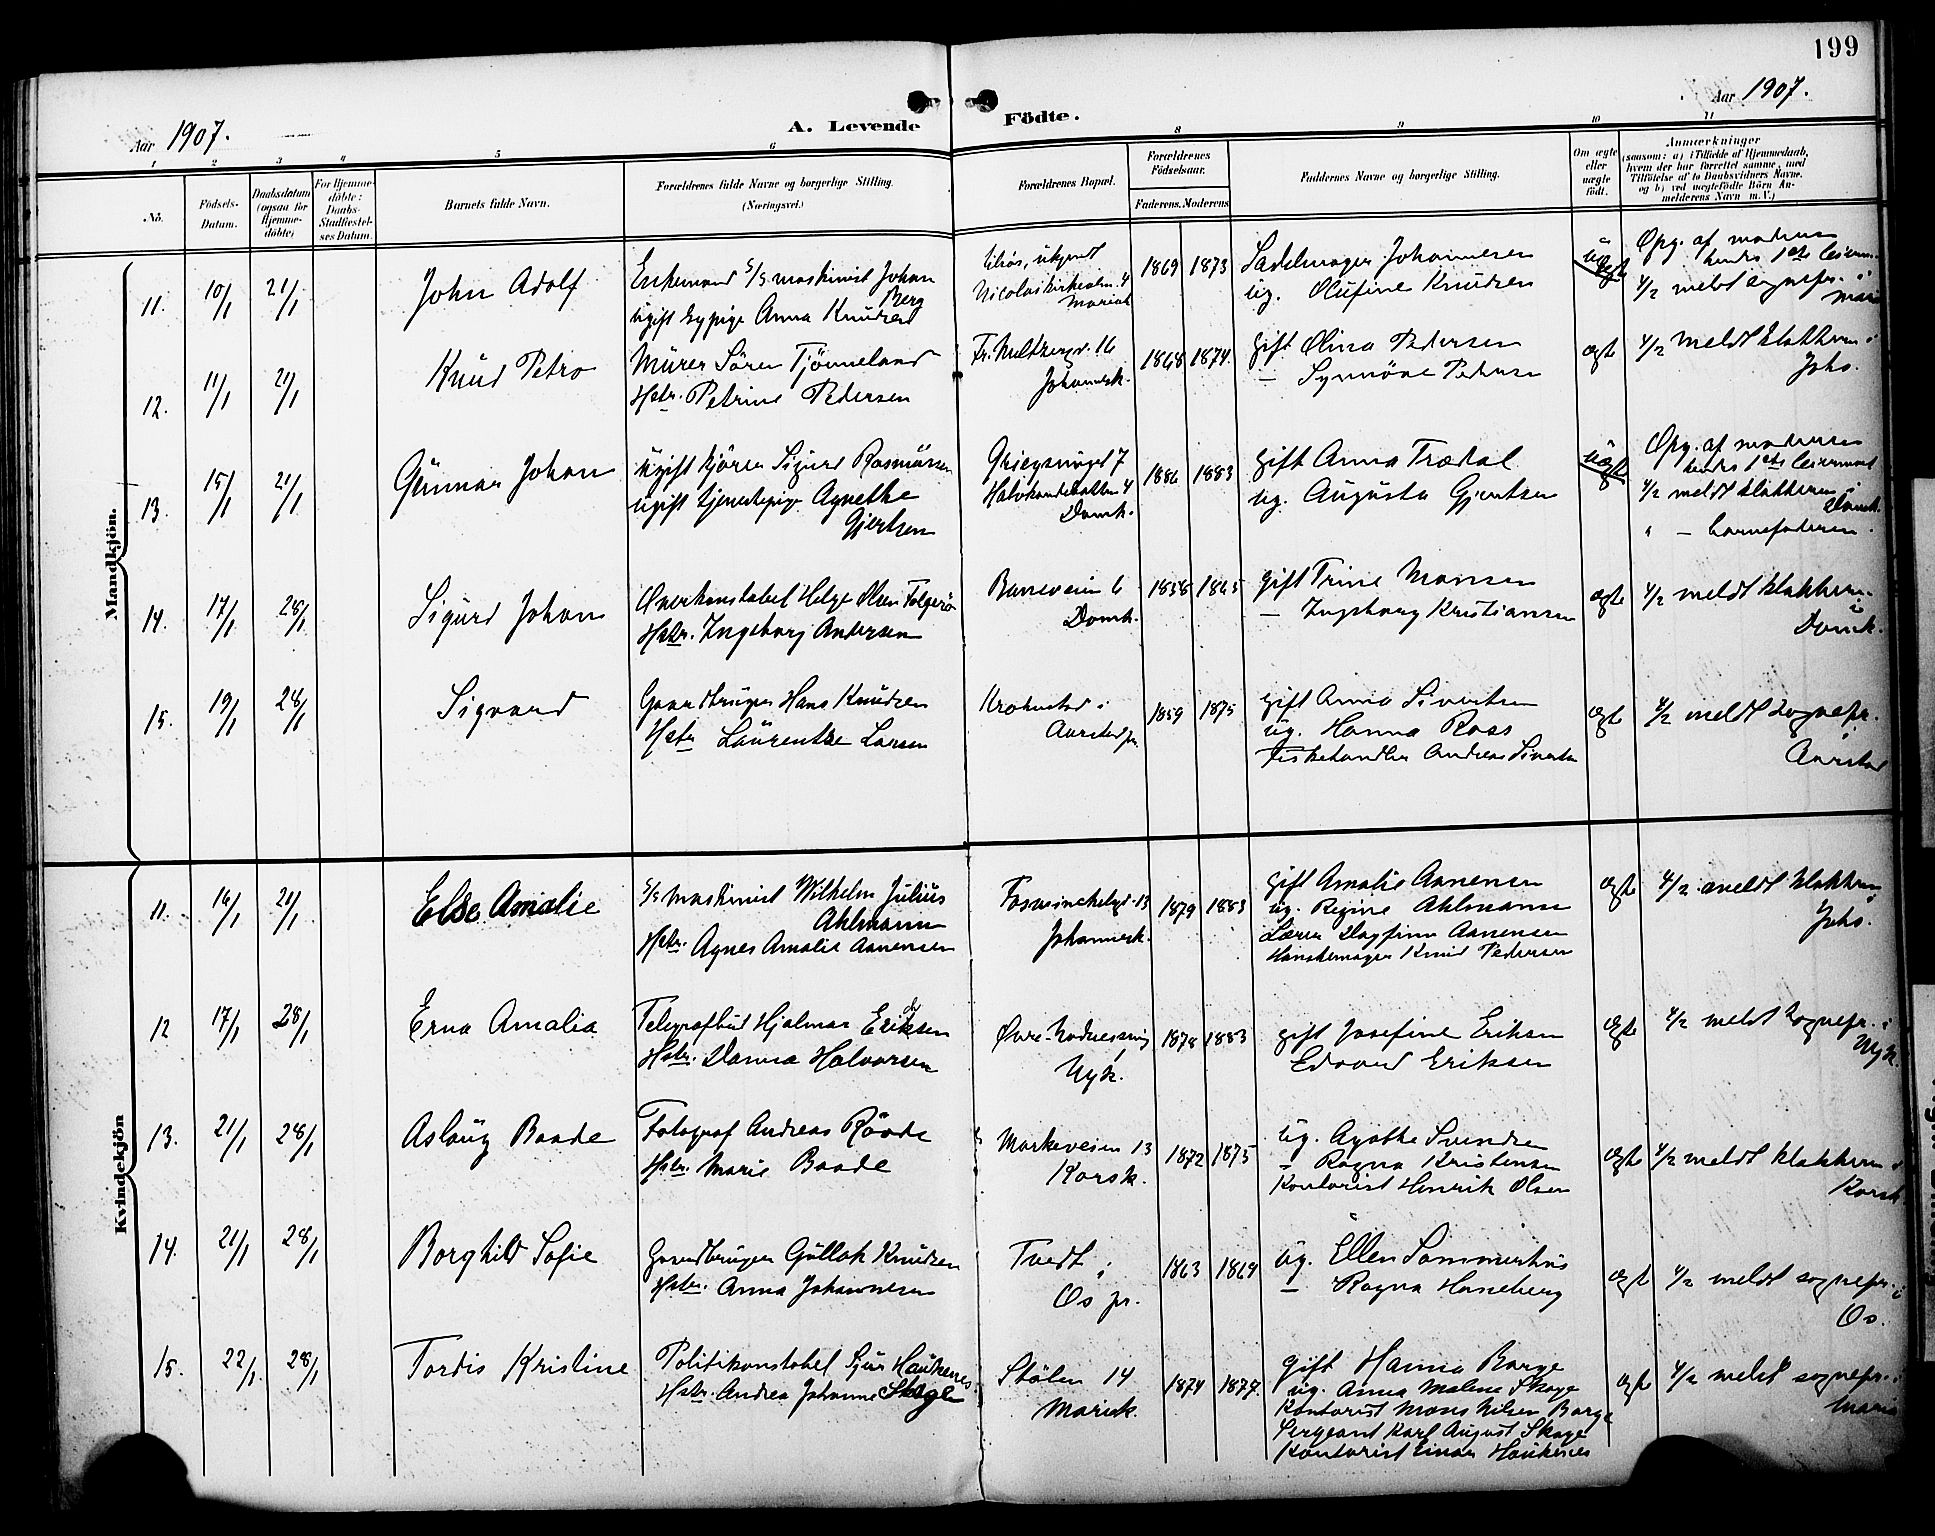 199
Aar 1907.
A. Levende Födte.
Aar 1907.
1 2 3 4 5 6 8 9 10 11
No.
Födsels-
Datum.
Daabsdatum
(ogsaa for
Hjemme-
döbte)
For Hjemme-
döbte:
Daabs-
Stadfæstel-
ses Datum.
Barnets fulde Navn.
Forældrenes fulde Navne og borgerlige Stilling.
(Næringsvei.)
Forældrenes Bopæl.
Forældrenes
Födselsaar.
Faderens. Moderens
Faddernes Navne og borgerlige Stilling.
Om ægte
eller
uægte
födt.
Anmærkninger
(saasom: a) i Tilfælde af Hjemmedaab,
hvem der har forrettet samme, med
Tilföielse af to Daabsvidners Navne,
og b) ved uægtefödte Börn An-
melderens Navn m. V.)
Mandkjön.
11. 10/1 21/1 John Adolf
Enkemand S/S maskinist Johan
Berg
ugift Anna Knudsen
ukjendt
Nicolaikirkealm. 4
Mariak
1869 1873
Sadelmager Johannesen
ug. Olufine Knudsen
uægte
Opg. af moderen
hendes 1ste leierm.
4/2 meldt sognepr. i
Maria
12. 11/1 21/1 Knud Petro
Murer Sören Tjönneland
Hstr. Petrine Pedersen
Fr. Meltzersg. 16
Johannesk.
1868 1874.
gift Olina Pedersen
— Synnöve Pedersen
ægte
4/2 meldt klokkeren i
Johs.
13. 15/1 21/1 Gunnar Johan
ugift kjörer Sigurd Rasmussen
ugift tjenestepige Agnethe
Gjertsen
7
4
Domk.
1886 1883
gift Anna Trædal
ug. Augusta Gjertsen
uægte
Opg. af moderen
hendes 1ste leiermaal
4/2 meldt klokkeren i
Domk.
" — barnefaderen.
14. 17/1 28/1 Sigurd Johan
Overkonstabel Helge Olsen Folgerö
Hstr. Ingeborg Andersen
Baneveien 6
Domk.
1858 1865
gift Trine Monsen
— Ingeborg Kristiansen
ægte
4/2 meldt klokkeren i
Domk.
15. 19/1 28/1 Sigvard
Gaardbruger Hans Knudsen
Hstr. Laurentse Larsen
Krohnstad i
Aarstad pr.
1859 1875
gift Anna Sivertsen
ug. Hanna Ross
Fiskehandler Andreas Sivertsen
ægte
4/2 meldt sognepr. i
Aarstad
Kvindekjön
11. 16/1 21/1 Else Amalie
S/S maskinist Wilhelm Julius
Ahlmann
Hstr. Agnes Amalie Aanensen
Fosswinckelsg. 13
Johannesk.
1879 1883
gift Amalie Aanensen
ug. Regine Ahlmann
Lærer Dagfinn Aanensen
Hanskemager Knud Pedersen
ægte
4/2 meldt klokkeren i
Johs.
12 17/1 28/1 Erna Amalia
Telegrafbud Hjalmar Eriksen
Hstr. Danna Halvorsen
Nyk.
1878 1883
gift Josefine Eriksen
Edvard Eriksen
ægte
4/2 meldt sognepr. i
Nyk.
13. 21/1 28/1 Aslaug Baade
Fotograf Andreas Röode
Hstr. Marie Baade
Markeveien 13
Korsk.
1872 1875
ug. Agathe Svendsen
— Ragna Kristensen
Kontorist Henrik Olsen
ægte
4/2 meldt klokkeren i
Korsk
14. 21/1 28/1 Borghild Sofie
Gaardbruger Gullak Knudsen
Hstr. Anna Johannesen
Tvedt i
Os pr.
1863 1869
ug. Ellen Sommerhus
— Ragna Haneberg
ægte
4/2 meldt sognepr. i
Os.
15. 22/1 28/1 Tordis Kristine
Politikonstabel Sjur Haukenes
Hstr. Andrea Johanne Skage
Stölen 14
Mariak.
1874 1877.
gift Hanna Borge
ug. Anna Malene Skage
Kontorist Mons Nilsen Borge
Sergeant Karl August Skage
Kontorist Einar Haukenes
ægte
4/2 meldt sognepr. i
Maria